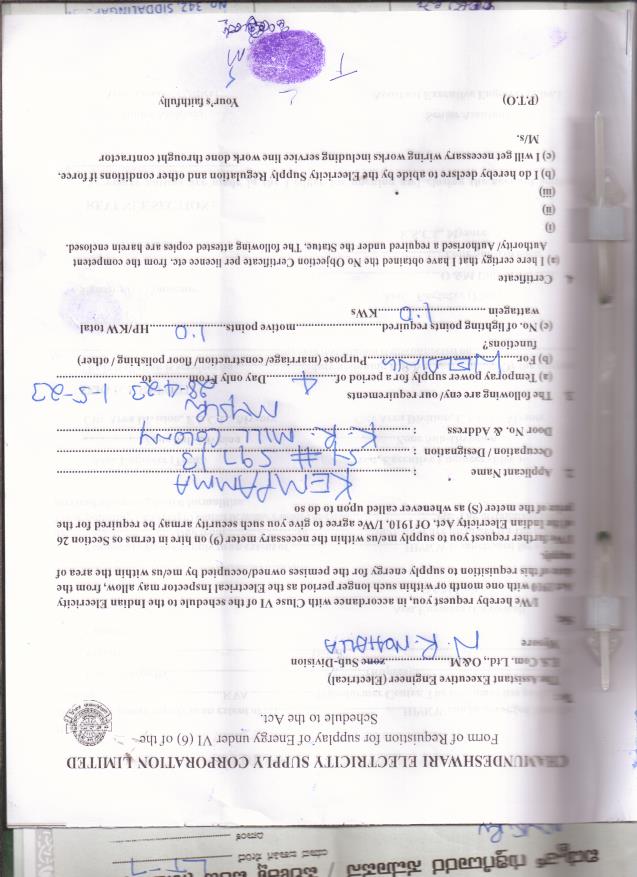 CHAMUNDESHWARI ELECTRICITY SUPPLY CORPORATION LIMITED
Form of Requisition for supplay of Energy under VI (6) of the
Schedule to the Act.
The Assistant Executive Engineer (Electrical)
E.S.Com. Ltd., O&M N.R. MOHALLA zone Sub-Division
Mysore
Sir,
I/We hereby request you, in accordance with Cluse VI of the schedule to the Indian Electricity
Act. 1910 with one month or within such longer period as the Electrical Inspector may allow, from the
date of this requisition to supply energy for the pemises owned/occupied by me/us within the area of
supply.
I/We further request you to supply me/us within the necessary meter (9) on hire in terms os Section 26
of the Indian Electricity Act. Of 1910. I/We agree to give you such security armay be required for the
price of the meter (S) as whenever called upon to do so
2. Applicant Name : KEMPAMMA
Occupation / Designation : # 597/3
Door No. & Address : K.R. MILL COLONY
3. The following are eny/ our requirements
(a) Temporay power supply for a period of 4 Day only From 28-4-23 to 1-5-23
(b) For WELDING Purpose (marriage/ construction/ floor polishing / other)
functions?
(c) No. of lighting points required motive points 1.0 HP/KW total
wattagein 1.0 KWs
4. Certificate
(a) I here certigy that I have obtained the No Objection Certificate per licence etc. from the competent
Authority/ Authorised a required under the Statue. The following attested copies are harein enclosed.
(i)
(ii)
(iii)
(b) I do hereby declasre to abide by the Electricity Supply Regulation and other conditions if force.
(c) I will get necessary wiring works including service line work done throught contractor
M/s.
(P.T.O) Your's faithfully
L
T
M
No 342, SIDDALINGAP